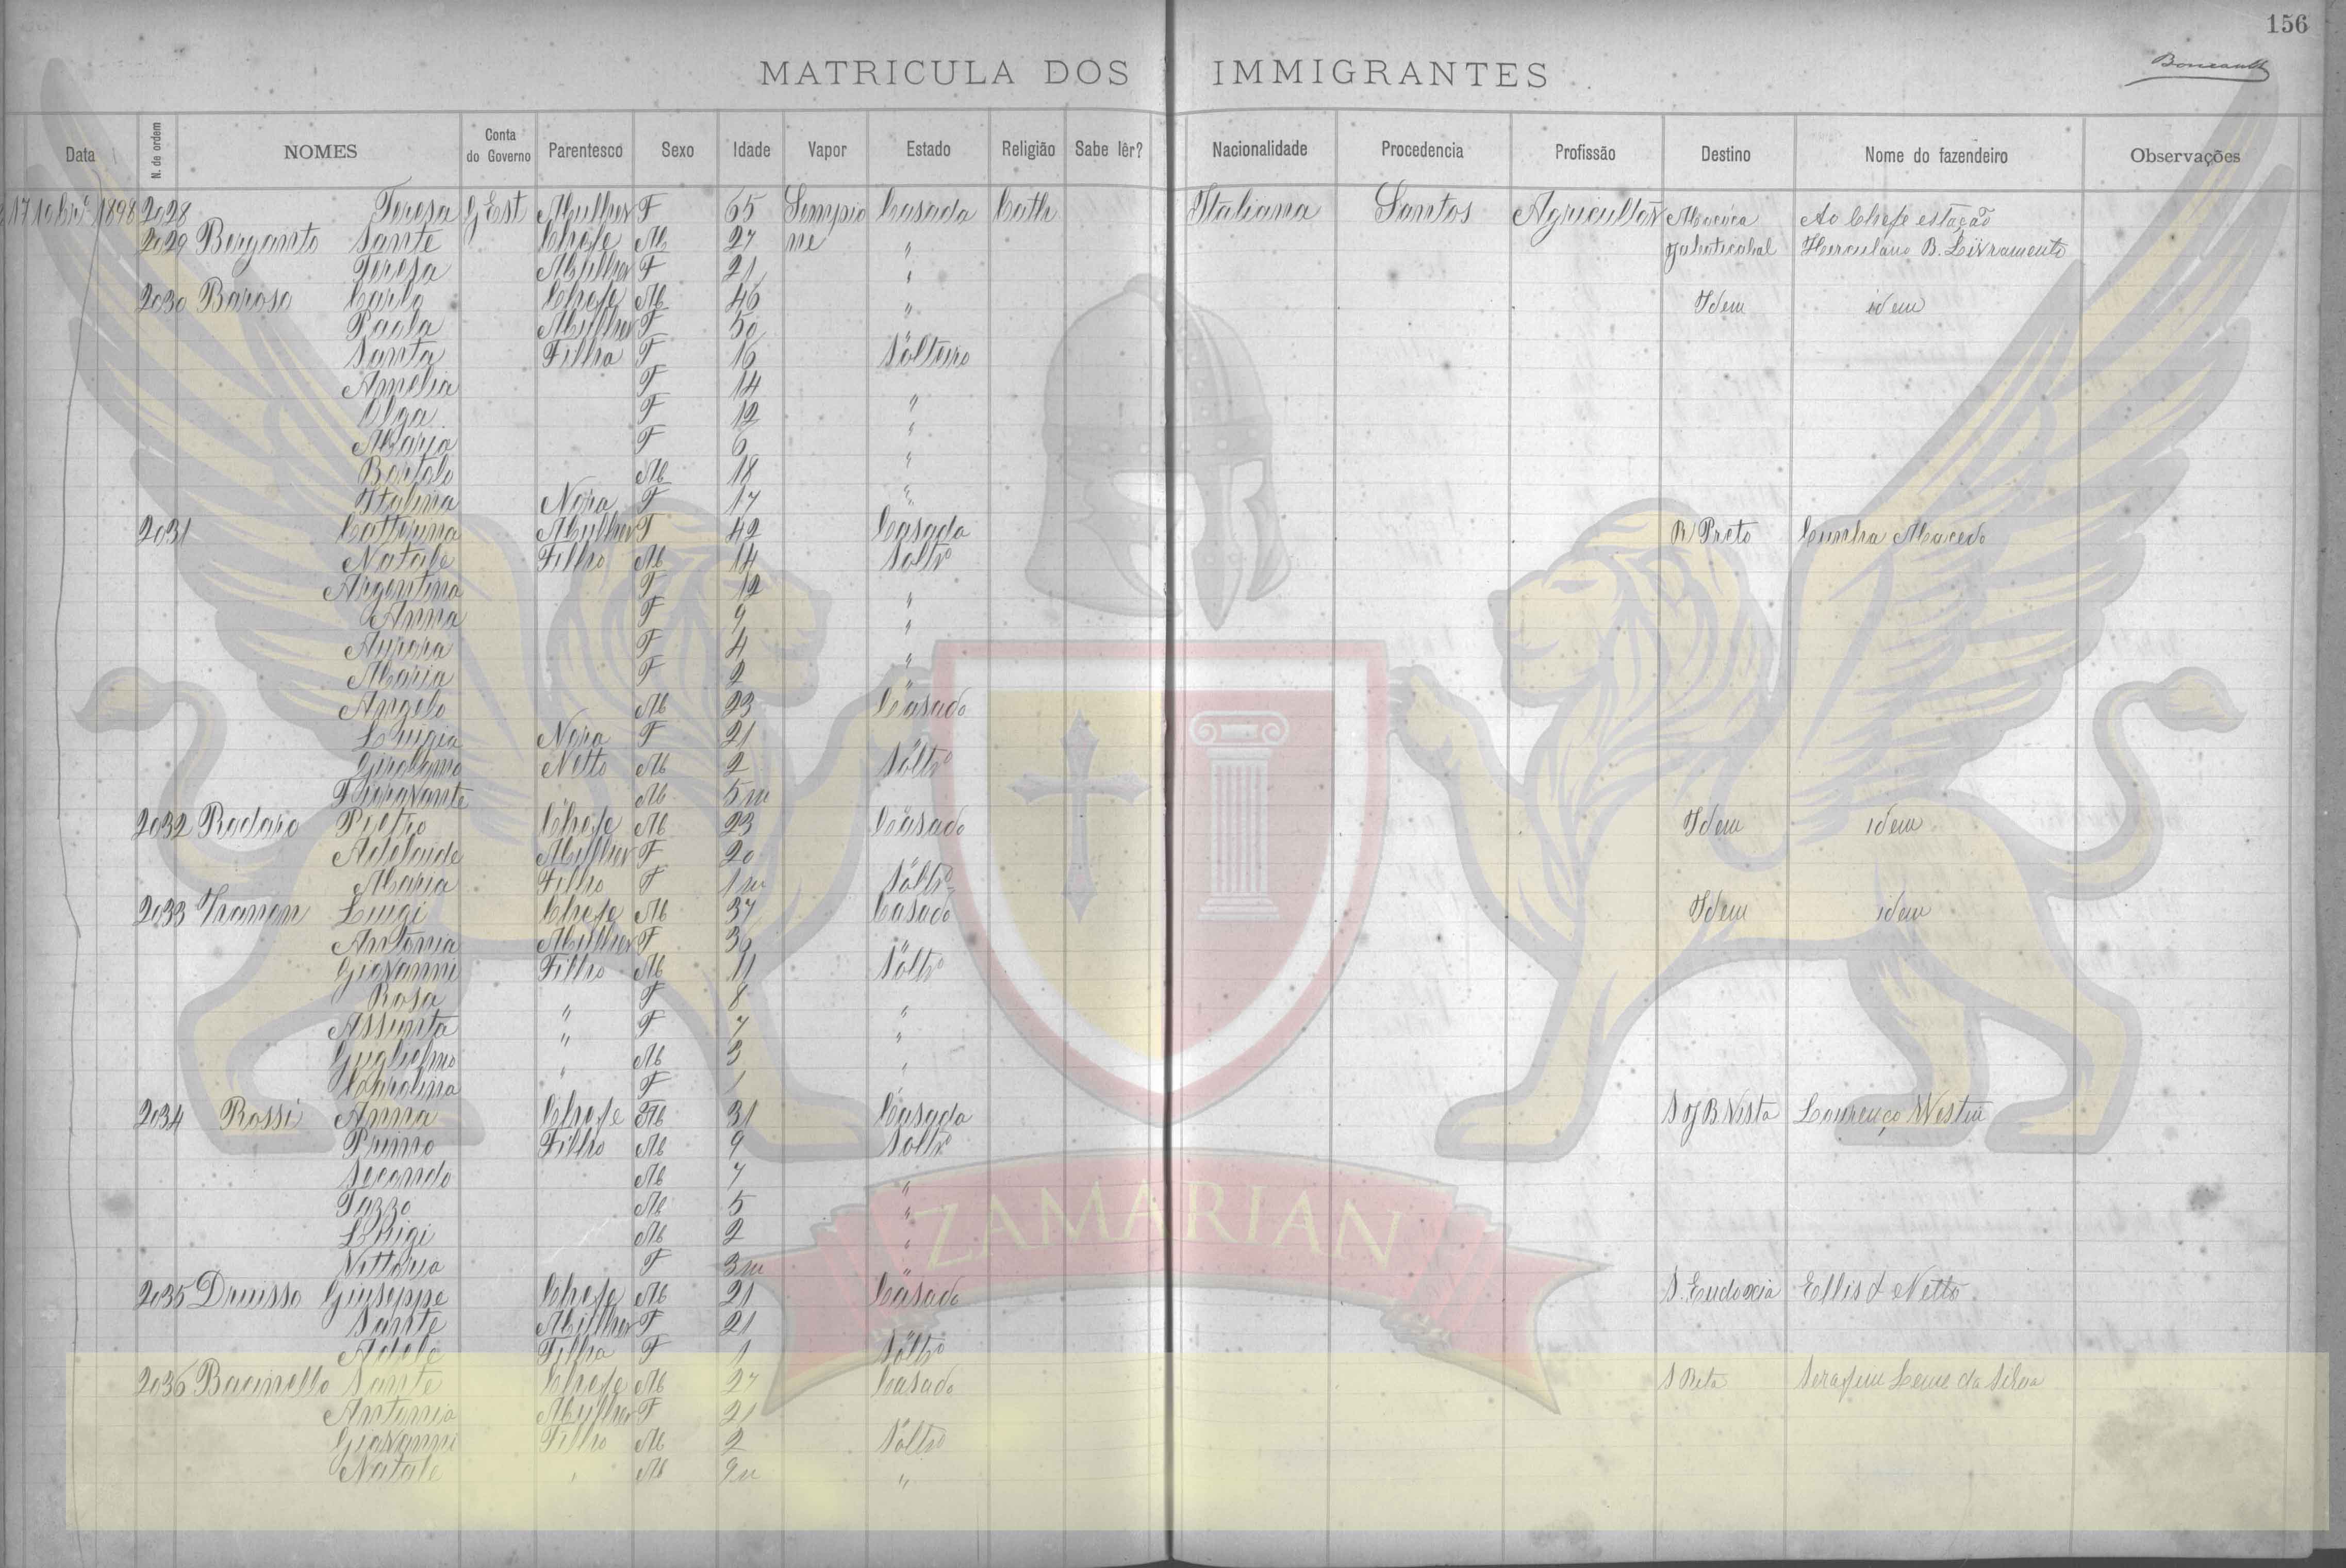 156
MATRICULA DOS IMMIGRANTES
Data N. de ordem NOMES Conta do Governo Parentesco Sexo Idade Vapor Estado Religião Sabe lêr? Nacionalidade Procedencia Profissão Destino Nome do fazendeiro Observações
17 10brº 1898 2028 Teresa G Est Mulher F 65 Sempio Casada Cath Italiana Santos Agricultor Mococa Ao Chefe estação
2029 Berganto Sante Chefe M 27 ne " Jaboticabal Herculano B. Livramento
Teresa Mulher F 21 "
2030 Baroso Carlo Chefe M 46 " Idem idem
Paola Mulher F 50 "
Santa Filha F 16 Solteiro
Amelia F 14 "
Olga F 12 "
Maria F 6 "
Bortolo M 18 "
Italina Nora F 17 "
2031 Catterina Mulher F 42 Casada R Preto Cunha Macedo
Natale Filho M 14 Soltrº
Argentina F 12 "
Anna F 9 "
Aurora F 4 "
Maria F 2 "
Angelo M 23 Casado
Luigia Nora F 21 "
Girolamo Netto M 2 Soltrº
Fioravante M 5 m "
2032 Rodaro Pietro Chefe M 23 Casado Idem idem
Adelaide Mulher F 20 "
Maria Filho F 1 m Soltrº
2033 Luigi Chefe M 37 Casado Idem idem
Antonia Mulher F "
Giovanni Filho M 11 Soltrº
Rosa " F 8 "
Assunta " F 7 "
Guglielmo " M 3 "
Carolina F 1 "
2034 Rossi Anna Chefe 31 Casada S J B Vista Lourenço Westin
Primo Filho M 9 Soltrº
Secondo M 7 "
M 5 "
Luigi M 2 "
Vittoria F 3 m "
2035 Druisso Giuseppe Chefe M 21 Casado S. Eudoxia Ellis & Netto
Sante Mulher F 21 "
Adele Filha F 1 Soltrº
2036 Bacinello Sante Chefe M 27 Casado S Rita Serafim Leme da Silva
Antonia Mulher F 21 "
Giovanni Filho M 2 Soltrº
Natale " M "
ZAMARIAN